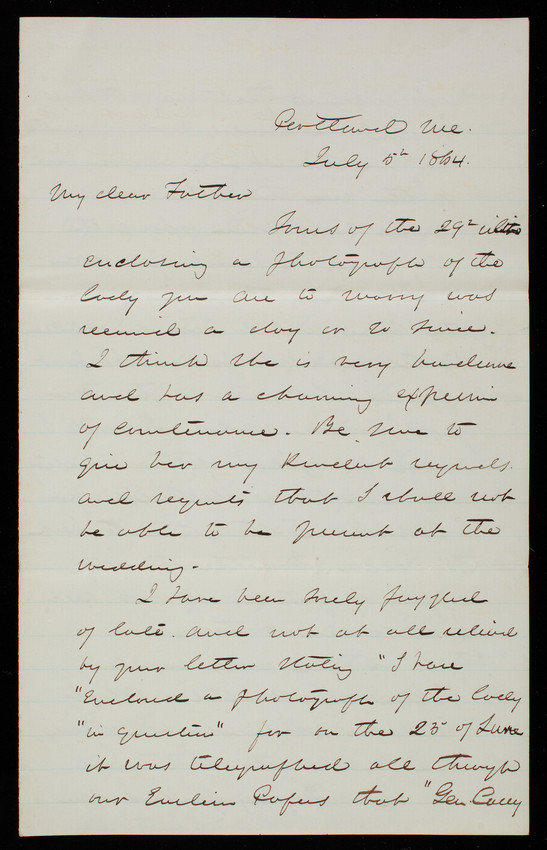 Portland Me.
July 5th 1864.
My dear Father
Yours of the 29th ulto
enclosing a photograph of the
lady you are to marry was
received a day or so since.
I think she is very handsome
and has a charming expression
of countenance. Be sure to
give her my kindest regards
and regrets that I shall not
be able to be present at the
wedding.
I have been sorely puzzled
of late. and not at all relieved
by your letter stating "I have
"Enclosed a photograph of the lady
"in question" for on the 25 of June
it was telegraphed all through
our Eastern Papers that "Gen Casey